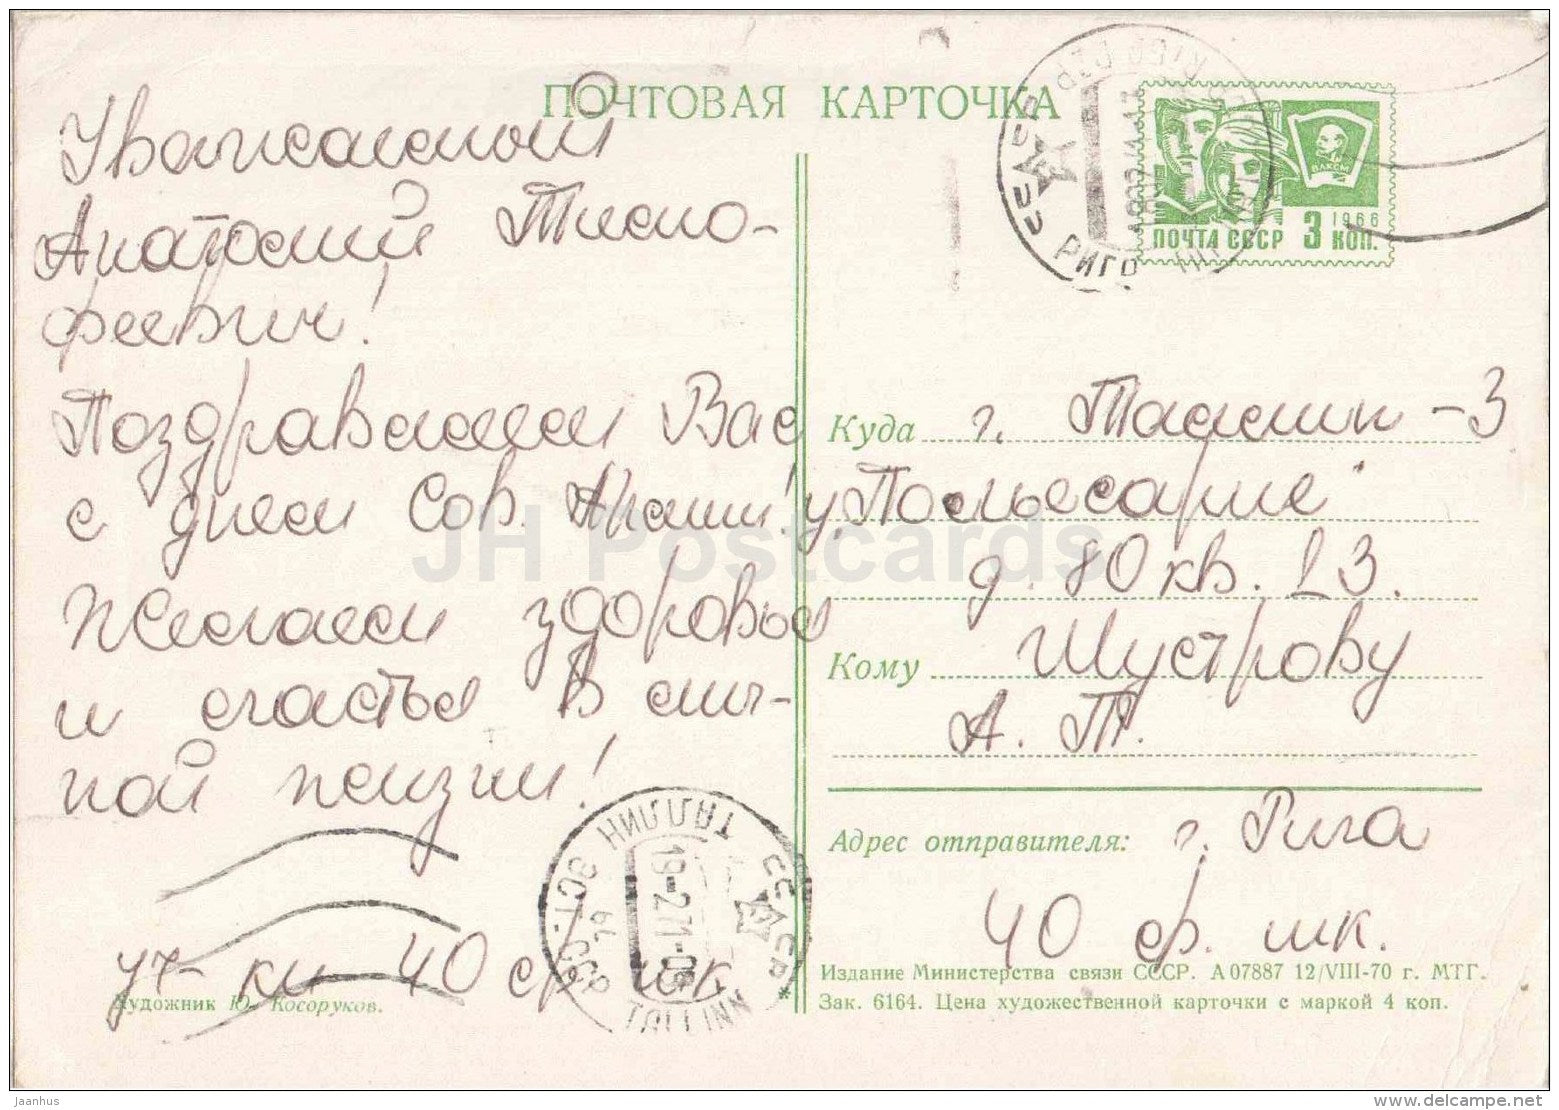 ПОЧТОВАЯ КАРТОЧКА
Уважаемый
Анатолий Тимо-
феевич!
Поздравляем Вас
с днем Сов. Армии!
Желаем здоровья
и счастья в лич-
ной жизни!
уч-ки 40 ср шк
Художник Ю. Косоруков.
1966
ПОЧТА СССР 3 КОП.
ВЛКСМ
СССР
РИГА
Куда г. Таллин-3
у. Пальясааре
д. 80 кв. 23.
Кому Шустрову
А. Т.
Адрес отправителя: г. Рига
40 ср. шк.
Издание Министерства связи СССР. А 07887 12/VIII-70 г. МТГ.
Зак. 6164. Цена художественной карточки с маркой 4 коп.
ТАЛЛИН СССР
ЭСТ. ССР
19-271-08
TALLINN
JH Postcards
Jaanhus
delcampe.net